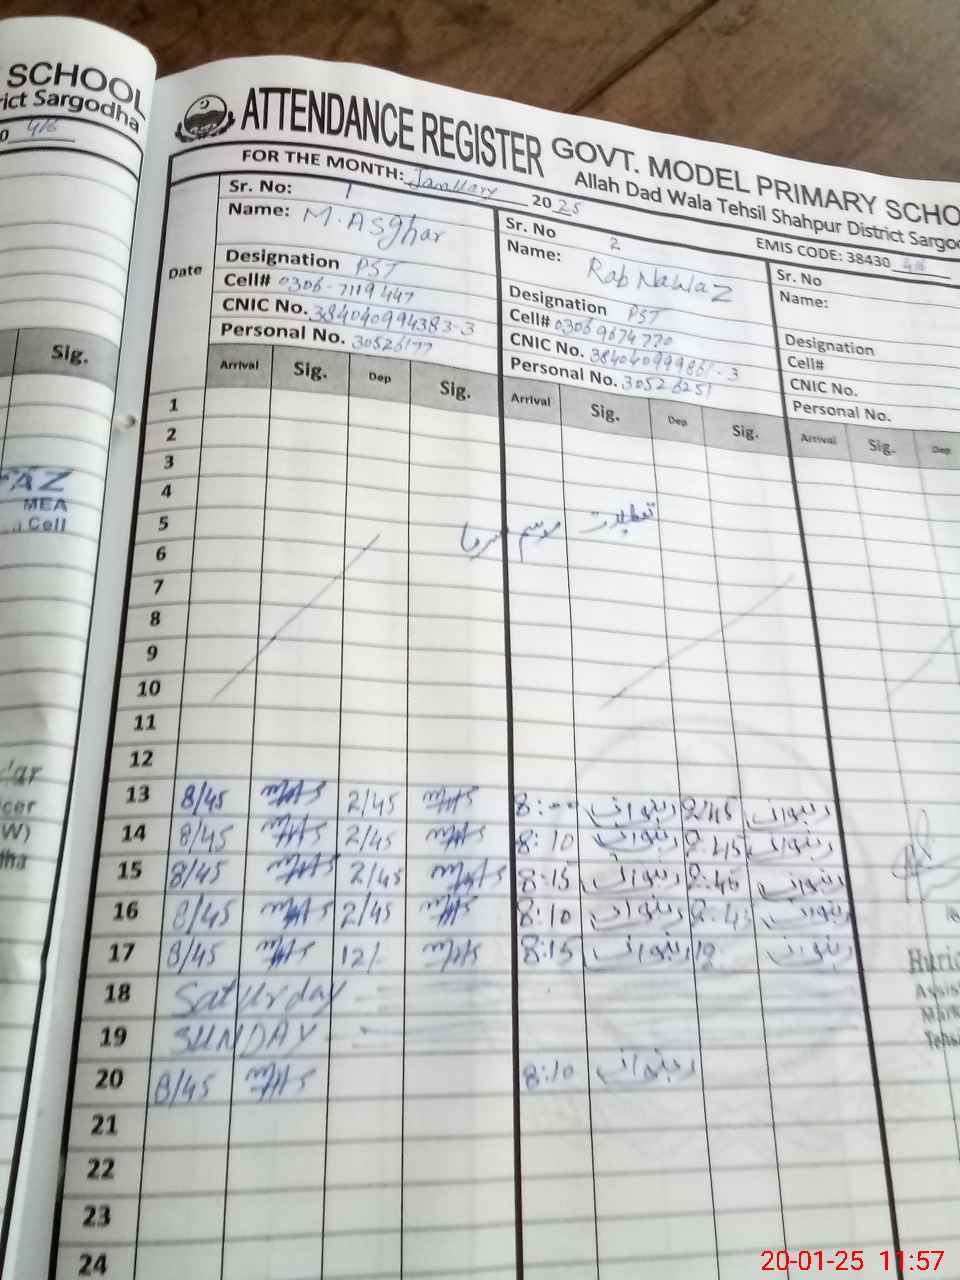 SCHOOL
rict Sargodha
ATTENDANCE REGISTER GOVT. MODEL PRIMARY SCHO
FOR THE MONTH: January 2025
Allah Dad Wala Tehsil Shahpur District Sargo
EMIS CODE: 38430
Date
Sr. No: 1
Name: M. Asghar
Designation PST
Cell# 0306-7119447
CNIC No. 384040994383-3
Personal No. 30526177
Arrival Sig. Dep Sig.
Sr. No 2
Name: Rab Nawaz
Designation PST
Cell# 03069674770
CNIC No.
Personal No. 30526251
Arrival Sig. Dep Sig.
Sr. No
Name:
Designation
Cell#
CNIC No.
Personal No.
Arrival Sig. Dep
Sig.
1
2
3
4
5 تعطیلات موسم سرما
6
7
8
9
10
11
12
13 8/45 2/45 8:00 ربنواز 2/45 ربنواز
14 8/45 2/45 8:10 ربنواز 2:45 ربنواز
15 8/45 2/45 8:15 ربنواز 2:45 ربنواز
16 8/45 2/45 8:10 ربنواز 2:45 ربنواز
17 8/45 12/- 8:15 ربنواز 12 ربنواز
18 Saturday
19 SUNDAY
20 8/45 8:10 ربنواز
21
22
23
24
FAZ
MEA
Cell
dar
cer
W)
dha
Assis
Tehs
20-01-25 11:57